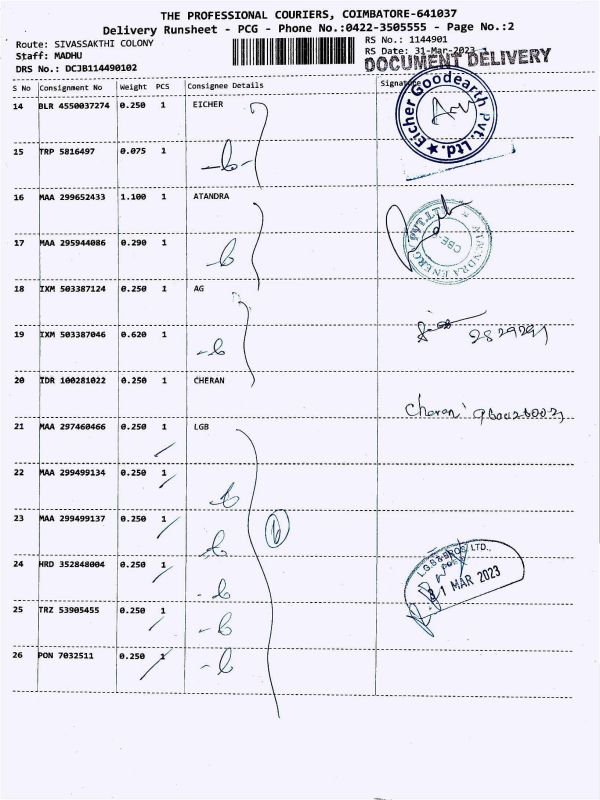 THE PROFESSIONAL COURIERS, COIMBATORE-641037
Delivery Runsheet - PCG - Phone No.:0422-3505555 - Page No.:2
Route: SIVASSAKTHI COLONY RS No.: 1144901
Staff: MADHU RS Date: 31-Mar-2023
DRS No.: DCJB114490102 DOCUMENT DELIVERY
S No Consignment No Weight PCS Consignee Details Signature
14 BLR 4550037274 0.250 1 EICHER
Eicher Goodearth Pvt. Ltd. ★
15 TRP 5816497 0.075 1
16 MAA 299652433 1.100 1 ATANDRA
ATANDRA ENERGY PVT.LTD ★
CBE
17 MAA 295944086 0.290 1
18 IXM 503387124 0.250 1 AG
19 IXM 503387046 0.620 1
20 IDR 100281022 0.250 1 CHERAN
Cheran
21 MAA 297460466 0.250 1 LGB
22 MAA 299499134 0.250 1
23 MAA 299499137 0.250 1
24 HRD 352848004 0.250 1
L.G.B & BROS LTD.,
31 MAR 2023
25 TRZ 53905455 0.250 1
26 PON 7032511 0.250 1